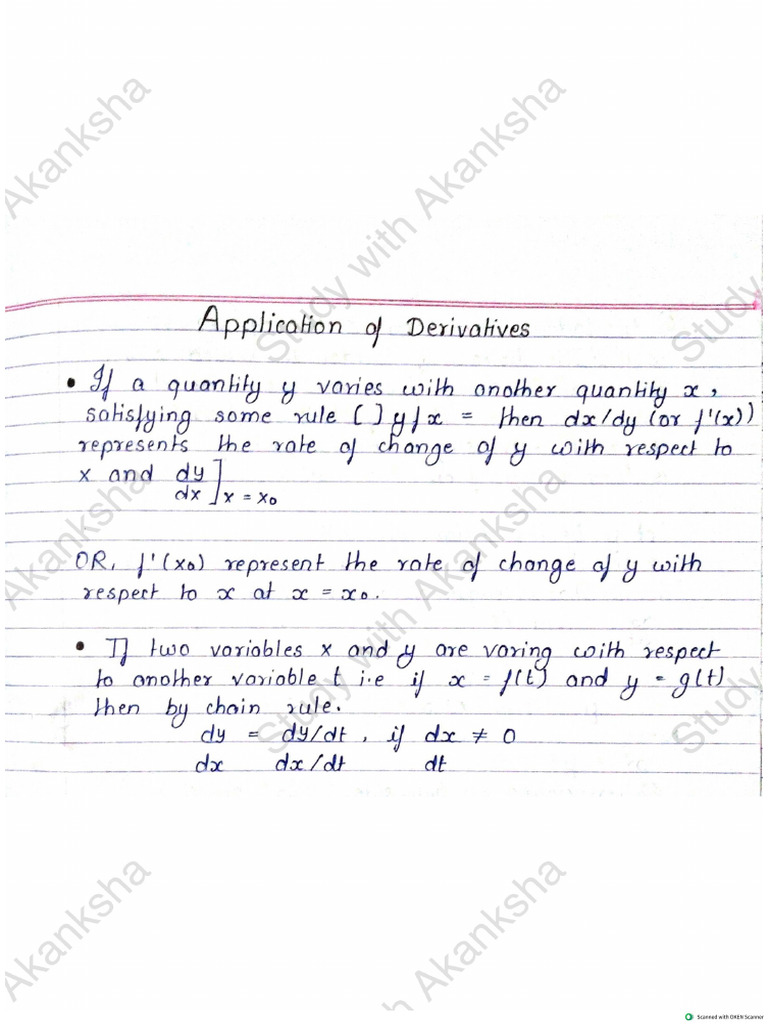 Application of Derivatives
• If a quantity y varies with another quantity x,
satisfying some rule [ ] y f x = then dx/dy (or f'(x))
represents the rate of change of y with respect to
x and dy/dx]x = x0
OR, f'(x0) represent the rate of change of y with
respect to x at x = x0.
• If two variables x and y are varing with respect
to another variable t i.e if x = f(t) and y = g(t)
then by chain rule.
dy = dy/dt, if dx ≠ 0
dx dx/dt dt
Study with Akanksha
Scanned with OKEN Scanner